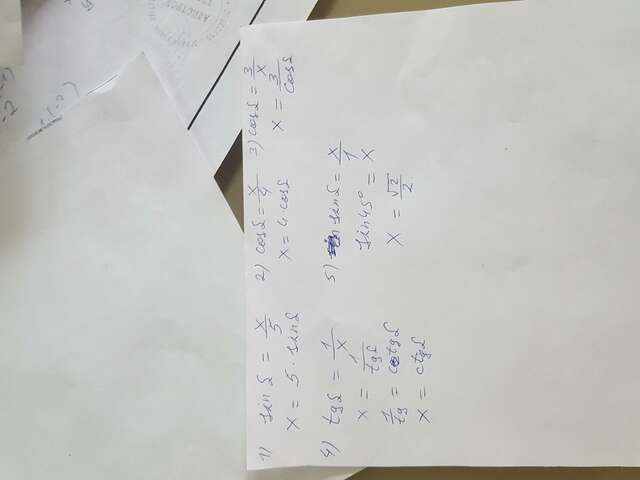 1) sin α = x/5
x = 5 · sin α
2) cos α = x/4
x = 4 · cos α
3) cos α = 3/x
x = 3/cos α
4) tg α = 1/x
x = 1/tg α
1/tg = ctg α
x = ctg α
5) sin α = x/1
sin 45° = x
x = √2/2